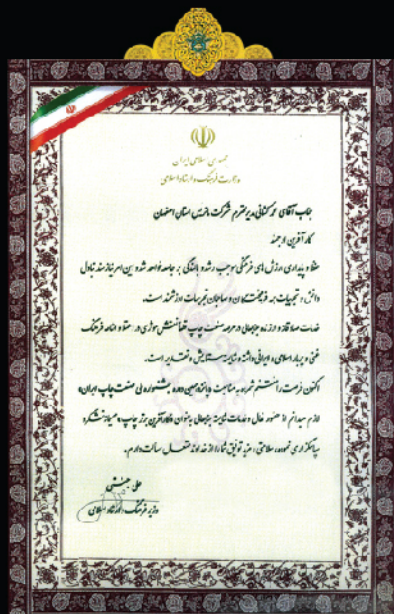 جمهوری اسلامی ایران
وزارت فرهنگ و ارشاد اسلامی
جناب آقای مدیر محترم شرکت استان اصفهان
کارآفرین ارجمند
حفظ و پایداری ارزش های فرهنگی موجب رشد و بالندگی هر جامعه خواهد شد و این امر نیازمند تبادل
دانش و تجربیات همه فرهیختگان و صاحبان تجربیات ارزشمند است.
خدمات صادقانه و ارزنده جنابعالی در عرصه صنعت چاپ نقش موثری در حفظ و اشاعه فرهنگ
غنی و پربار اسلامی و ایرانی داشته و شایسته ستایش و تقدیر است.
اکنون فرصت را مغتنم شمرده به مناسبت دوره جشنواره ملی صنعت چاپ ایران
لازم میدانم از حضور فعال و خدمات شایسته جنابعالی بعنوان کارآفرین برتر چاپ صمیمانه تشکر و
سپاسگزاری نموده، سلامتی و مزید توفیق شما را از خداوند متعال مسألت دارم.
علی جنتی
وزیر فرهنگ و ارشاد اسلامی